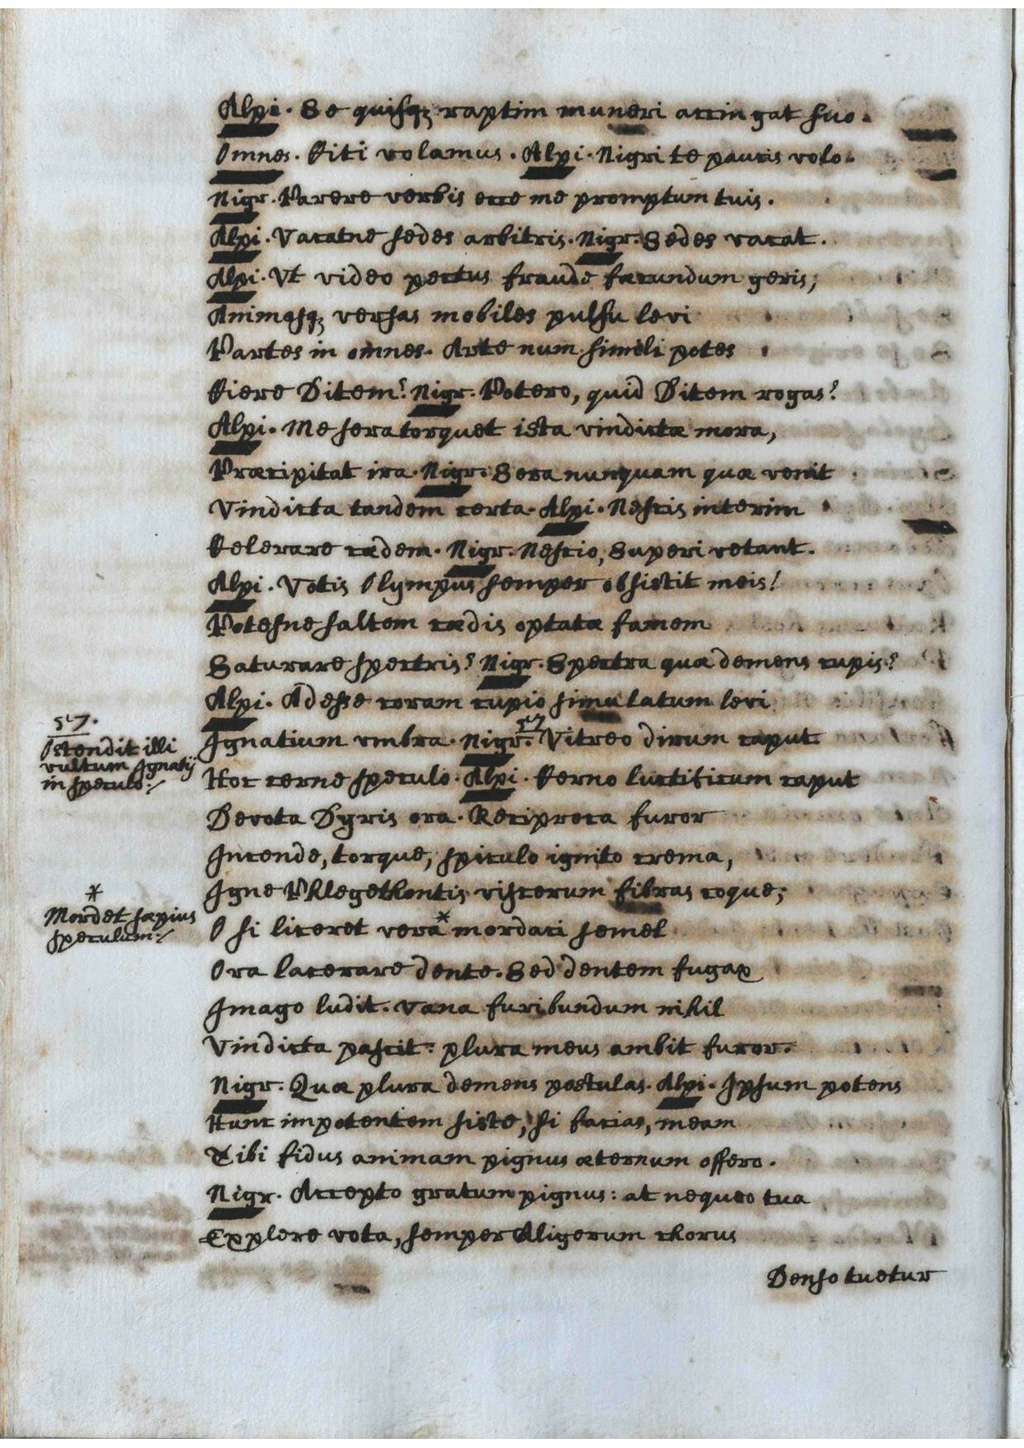 Alpi. Se quisq; raptim muneri accingat suo.
Omnes. Citi volamus. Alpi. Nigri te paucis volo.
Nigr. Parere verbis ecce me promptum tuis.
Alpi. Vacatne sedes arbitris. Nigr. Sedes vacat.
Alpi. Ut video pectus fraude facundum geris;
Animasq; versas mobiles pulsu levi
Partes in omnes. Arte num simili potes
Ciere Ditem? Nigr. Potero, quid Ditem rogas?
Alpi. Me sera torquet ista vindictæ mora,
Præcipitat ira. Nigr. Sera nunquam quæ venit
Vindicta tandem certa. Alpi. Nescis interim
Celerare cædem. Nigr. Nescio, Superi vetant.
Alpi. Votis Olympus semper obsistit meis!
Potesne saltem cædis optatæ famem
Saturare spectris? Nigr. Spectra quæ demens cupis?
Alpi. Adesse coram cupio simulatum levi
57.
Ostendit illi
vultum Ignatij
in speculo:/
Ignatium umbra. Nigr. 57 Vitreo dirum caput
Hoc cerne speculo. Alpi. Cerno luctificum caput
Devota Dyris ora. Reciproca furor
Incende, torque, spiculo ignito crema,
Igne Phlegethontis viscerum fibras coque;
*
Mordet sæpius
speculum:/
O si liceret vera * mordaci semel
Ora lacerare dente. Sed dentem fugax
Imago ludit. vana furibundum nihil
Vindicta pascit: plura meus ambit furor.
Nigr. Quæ plura demens postulas. Alpi. Ipsum potens
Hunc impotentem siste, si facias, meam
Tibi fidus animam pignus æternum offero.
Nigr. Accepto gratum pignus: at nequeo tua
Explere vota, semper Aligerum chorus
Denso tuetur